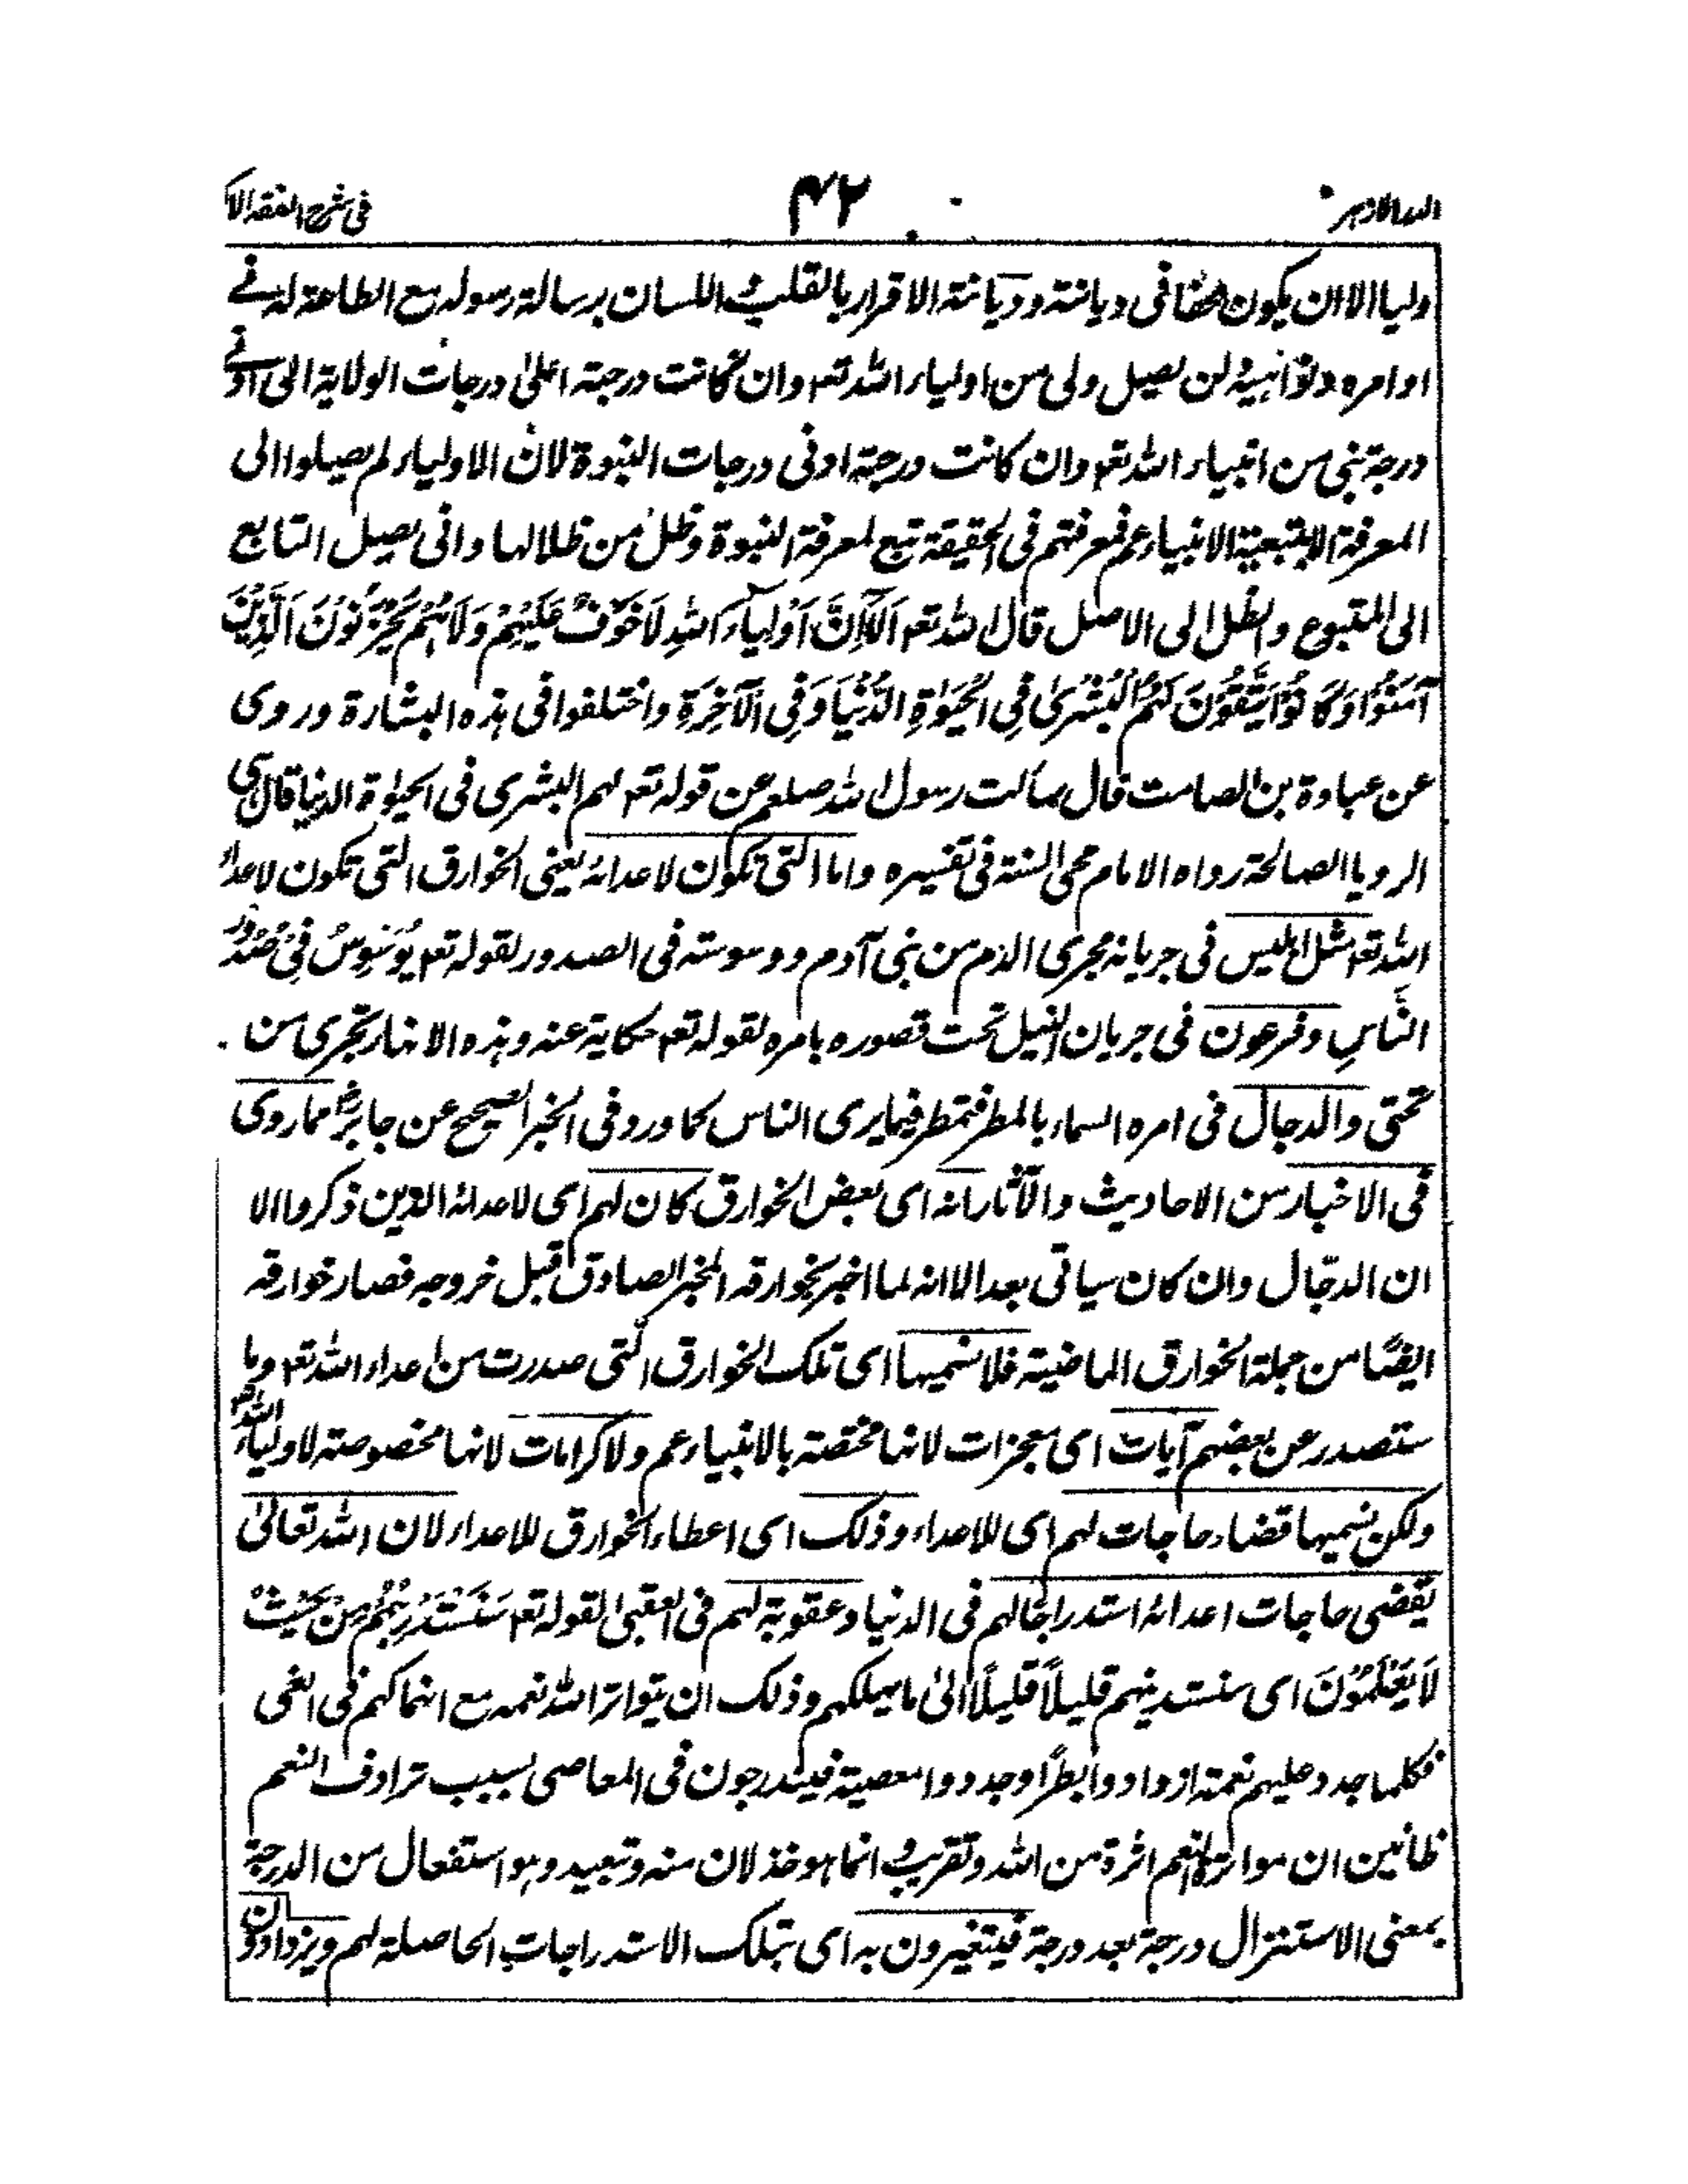 الدر الازهر ۴۲ فى شرح الفقه الاك
وليا الا ان يكون محقا فى ديانته وديانته الاقرار بالقلب واللسان برسالة رسوله مع الطاعة له فے
اوامره ونواهيه لن يصل ولى من اولياء الله تعم وان كانت درجته اعلىٰ درجات الولاية الى ادنے
درجة نبى من انبياء الله تعم وان كانت درجته ادنى درجات النبوة لان الاولياء لم يصلوا الى
المعرفة الا بتبعية الانبياء عم فمعرفتهم فى الحقيقة تبع لمعرفة النبوة وظل من ظلالها وانى يصل التابع
الى المتبوع والظل الى الاصل قال الله تعم اَلَآ اِنَّ اَوْلِيَآءَ اللّٰهِ لَا خَوْفٌ عَلَيْهِمْ وَلَا هُمْ يَحْزَنُوْنَ الَّذِيْنَ
آمَنُوْا وَكَانُوْا يَتَّقُوْنَ لَهُمُ الْبُشْرٰى فِى الْحَيٰوةِ الدُّنْيَا وَفِى الْآخِرَةِ واختلفوا فى هذه البشارة وروى
عن عبادة بن الصامت قال سالت رسول الله صلعم عن قوله تعم لهم البشرى فى الحيوٰة الدنيا قال هى
الرويا الصالحة رواه الامام محى السنة فى تفسيره واما التى تكون لاعدائه يعنى الخوارق التى تكون لاعداء
الله تعم مثل ابليس فى جريانه مجرى الدم من بنى آدم ووسوسته فى الصدور لقوله تعم يُوَسْوِسُ فِىْ صُدُوْرِ
النَّاسِ وفرعون فى جريان النيل تحت قصوره بامره لقوله تعم حكاية عنه وهذه الانهار تجرى من
تحتى والدجال فى امره السماء بالمطر فتمطر فيما يرى الناس كما ورد فى الخبر الصحيح عن جابر رض مما روى
فى الاخبار من الاحاديث والآثار انه اى بعض الخوارق كان لهم اى لاعدائه الذين ذكروا الا
ان الدجّال وان كان سياتى بعد الا انه لما اخبر بخوارقه المخبر الصادق قبل خروجه فصار خوارقه
ايضًا من جملة الخوارق الماضية فلا نسميها اى تلك الخوارق التى صدرت من اعداء الله تعم وما
ستصدر عن بعضهم آيات اى معجزات لانها مختصة بالانبياء عم ولا كرامات لانها مخصوصة لاولياء الله تعم
ولكن نسميها قضاء حاجات لهم اى للاعداء وذلك اى اعطاء الخوارق للاعداء لان الله تعالىٰ
يقضى حاجات اعدائه استدراجًا لهم فى الدنيا وعقوبة لهم فى العقبىٰ لقوله تعم سَنَسْتَدْرِجُهُمْ مِنْ حَيْثُ
لَا يَعْلَمُوْنَ اى سنستدينهم قليلًا قليلًا الىٰ ما يهلكهم وذلك ان يتواتر الله نعمه مع انهماكهم فى الغى
فكلما جدد عليهم نعمة ازدادوا بطرًا وجددوا معصية فيتدرجون فى المعاصى بسبب ترادف النعم
ظانين ان مواترة النعم اثرة من الله وتقريب وانما هو خذلان منه وتبعيد وهو استفعال من الدرجة
بمعنى الاستنزال درجة بعد درجة فيتغيرون به اى بتلك الاستدراجات الحاصلة لهم ويزدادون